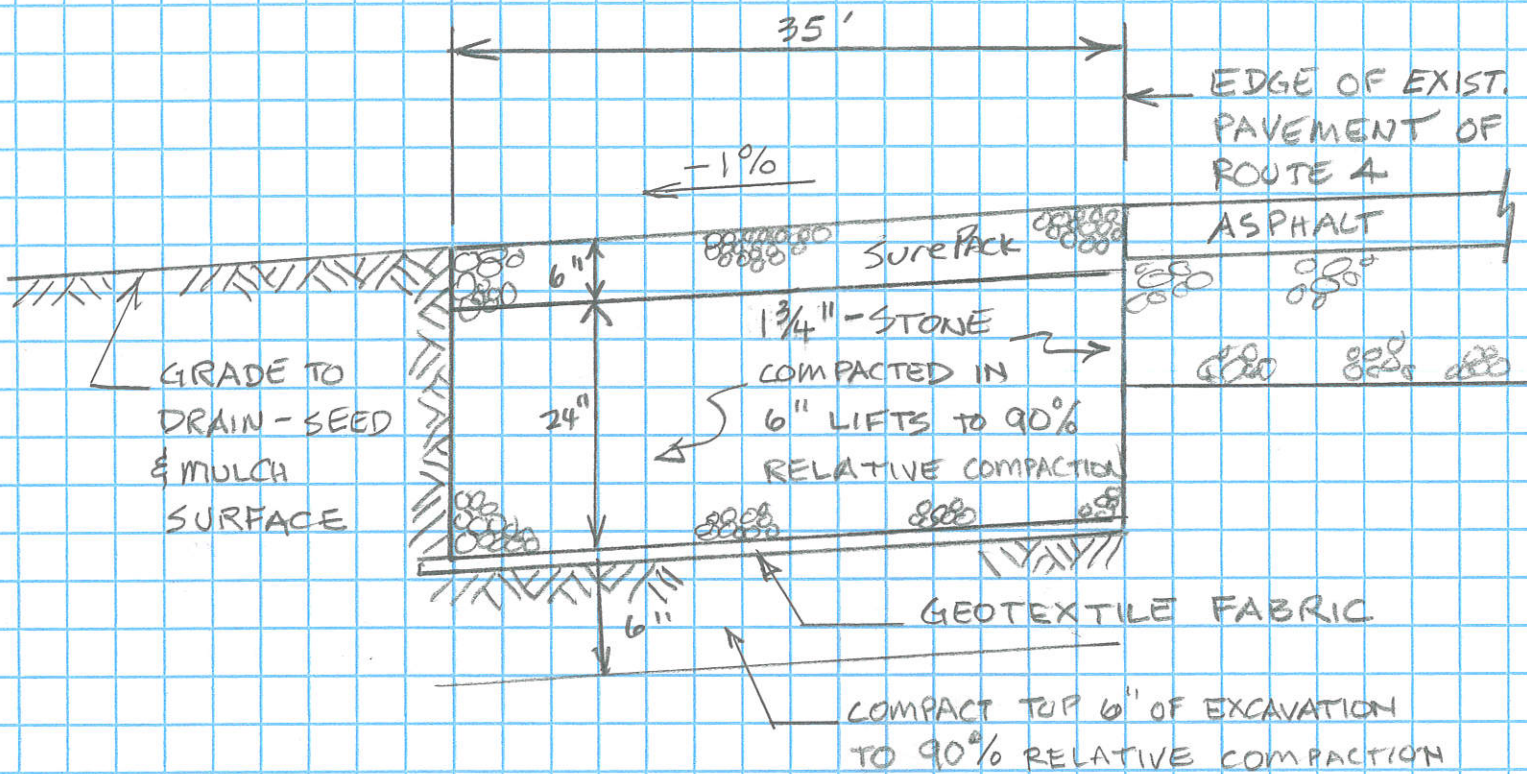 35'
EDGE OF EXIST.
PAVEMENT OF
ROUTE 4
-1%
ASPHALT
SurePack
6"
1 3/4" - STONE
COMPACTED IN
6" LIFTS TO 90%
RELATIVE COMPACTION
24"
GRADE TO
DRAIN - SEED
& MULCH
SURFACE
GEOTEXTILE FABRIC
6"
COMPACT TOP 6" OF EXCAVATION
TO 90% RELATIVE COMPACTION